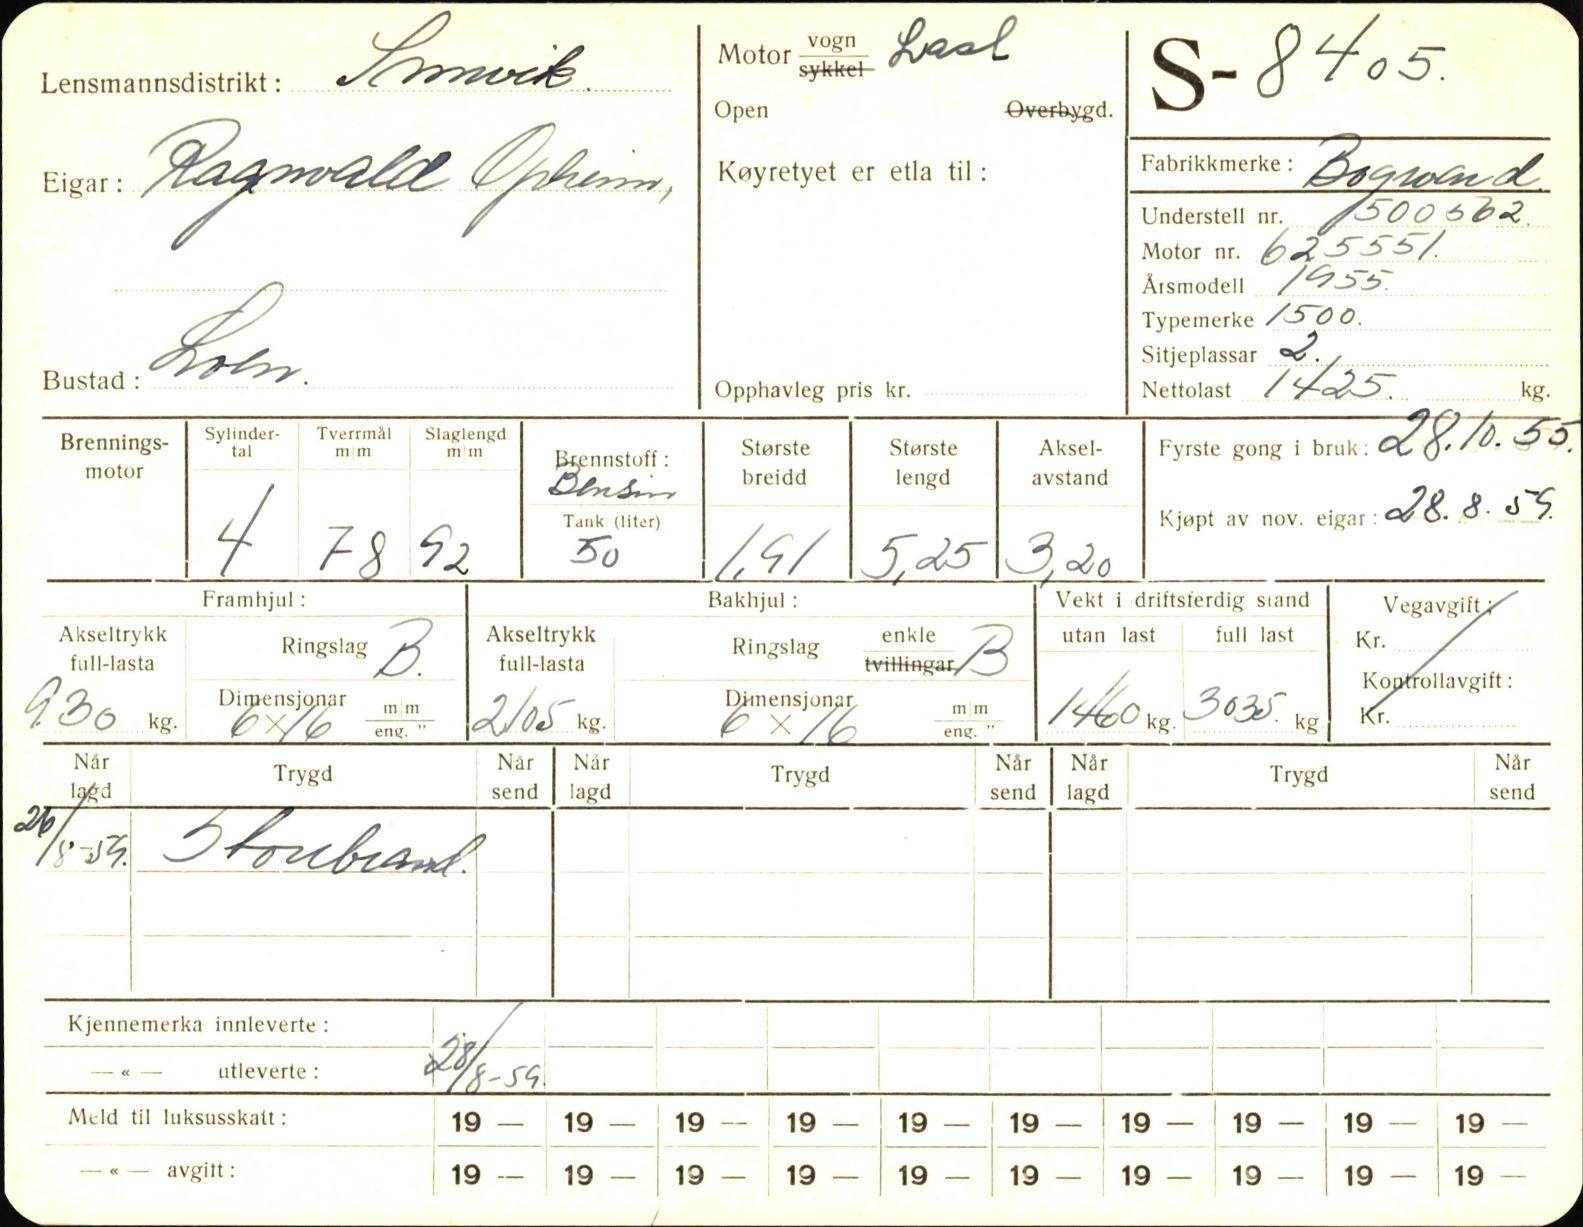 Lensmannsdistrikt: Innvik.
Eigar: Ragnvald Opheim,
Bustad: Loen.
Motor vogn Last
sykkel
Open Overbygd.
Køyretyet er etla til:
Opphavleg pris kr.
S- 8405.
Fabrikkmerke: Bogward.
Understell nr. 1500562.
Motor nr. 625551.
Årsmodell 1955.
Typemerke 1500.
Sitjeplassar 2.
Nettolast 1425. kg.
Brennings-
motor
Sylinder-
tal
4
Tverrmål
m|m
78
Slaglengd
m|m
92
Brennstoff:
Bensin
Tank (liter)
50
Største
breidd
1,91
Største
lengd
5,25
Aksel-
avstand
3,20
Fyrste gong i bruk: 28.10.55.
Kjøpt av nov. eigar: 28.8.59.
Framhjul:
Akseltrykk
full-lasta
930 kg.
Ringslag B.
Dimensjonar
6 × 16 m|m
eng. "
Bakhjul:
Akseltrykk
full-lasta
2105 kg.
Ringslag enkle B
tvillingar
Dimensjonar
6 × 16 m|m
eng. "
Vekt i driftsferdig stand
utan last full last
1460 kg. 3035. kg
Vegavgift:
Kr.
Kontrollavgift:
Kr.
Når lagd Trygd Når send Når lagd Trygd Når send Når lagd Trygd Når send
26/8-59. Storebrand.
Kjennemerka innleverte:
— « — utleverte: 28/8-59.
Meld til luksusskatt: 19 — 19 — 19 — 19 — 19 — 19 — 19 — 19 — 19 — 19 —
— « — avgift: 19 — 19 — 19 — 19 — 19 — 19 — 19 — 19 — 19 — 19 —